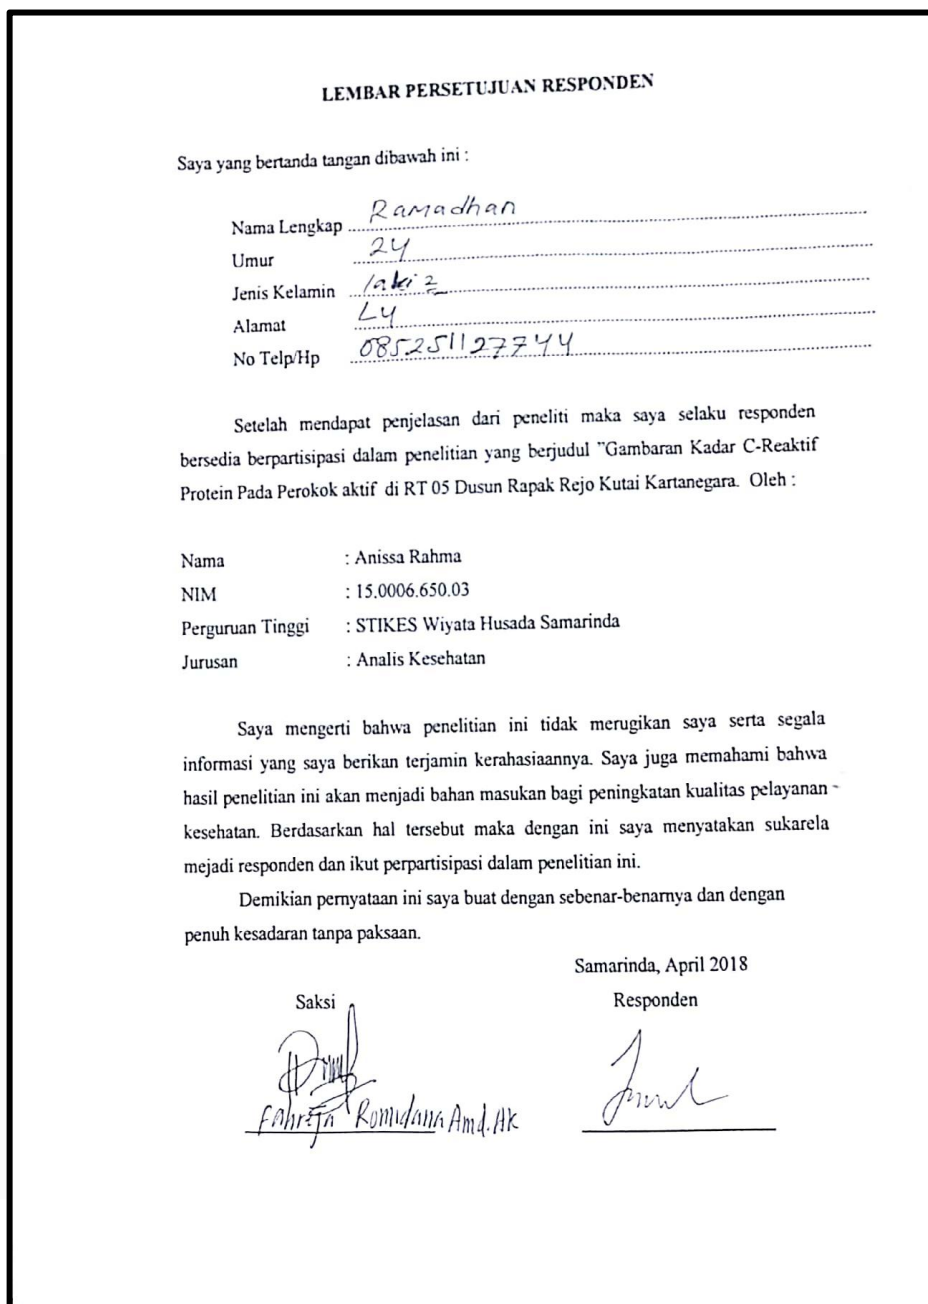 LEMBAR PERSETUJUAN RESPONDEN
Saya yang bertanda tangan dibawah ini :
Nama Lengkap Ramadhan
Umur 24
Jenis Kelamin laki 2
Alamat L4
No Telp/Hp 085251127744
Setelah mendapat penjelasan dari peneliti maka saya selaku responden
bersedia berpartisipasi dalam penelitian yang berjudul "Gambaran Kadar C-Reaktif
Protein Pada Perokok aktif di RT 05 Dusun Rapak Rejo Kutai Kartanegara. Oleh :
Nama : Anissa Rahma
NIM : 15.0006.650.03
Perguruan Tinggi : STIKES Wiyata Husada Samarinda
Jurusan : Analis Kesehatan
Saya mengerti bahwa penelitian ini tidak merugikan saya serta segala
informasi yang saya berikan terjamin kerahasiaannya. Saya juga memahami bahwa
hasil penelitian ini akan menjadi bahan masukan bagi peningkatan kualitas pelayanan
kesehatan. Berdasarkan hal tersebut maka dengan ini saya menyatakan sukarela
mejadi responden dan ikut perpartisipasi dalam penelitian ini.
Demikian pernyataan ini saya buat dengan sebenar-benarnya dan dengan
penuh kesadaran tanpa paksaan.
Samarinda, April 2018
Saksi Responden
Romidana Amd.AK